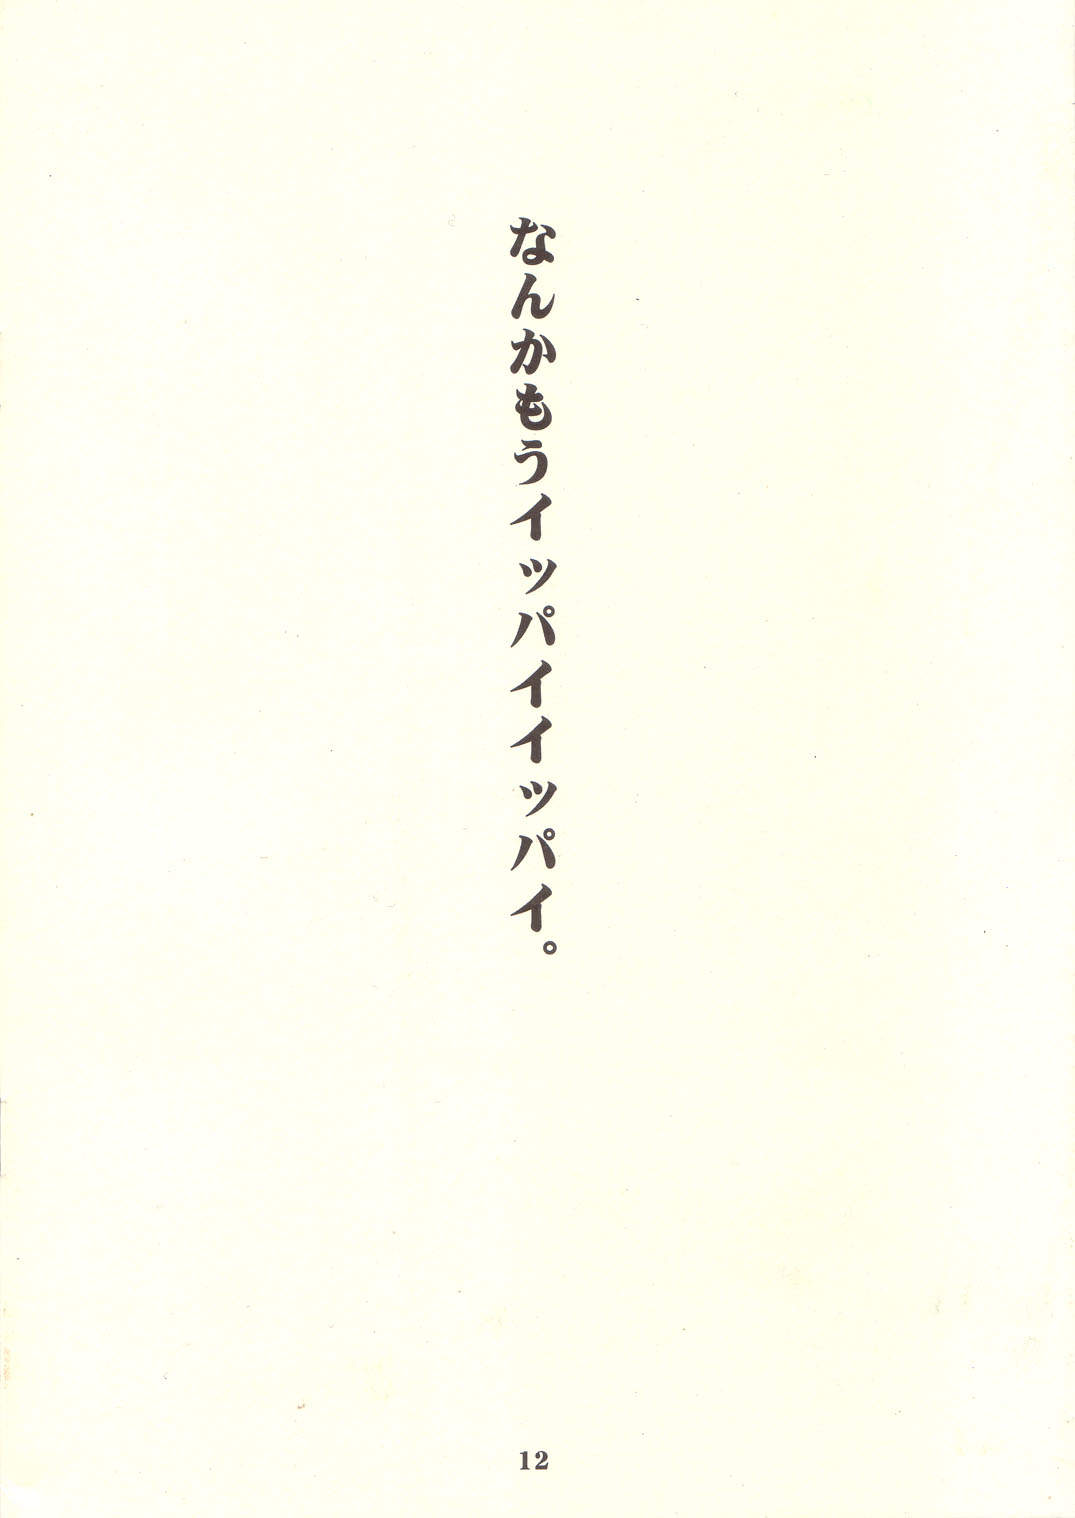 なんかもうイッパイイッパイ。
12